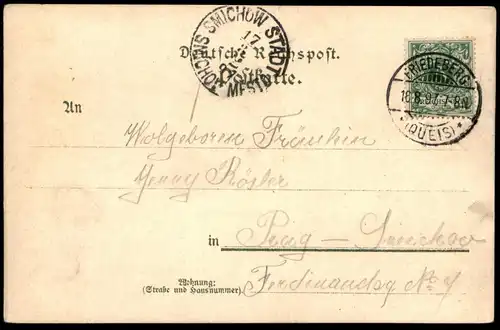 KÖNIGL. SMICHOW STADT
17
MĚSTO
Deutsche Reichspost.
Postkarte.
FRIEDEBERG
16.8.97. 7-8N
(QUEIS)
An
Wolgeboren Fräulein
Jenny Rösler
in Prag — Smichov
Wohnung:
(Straße und Hausnummer)
Ferdinandsg No 7